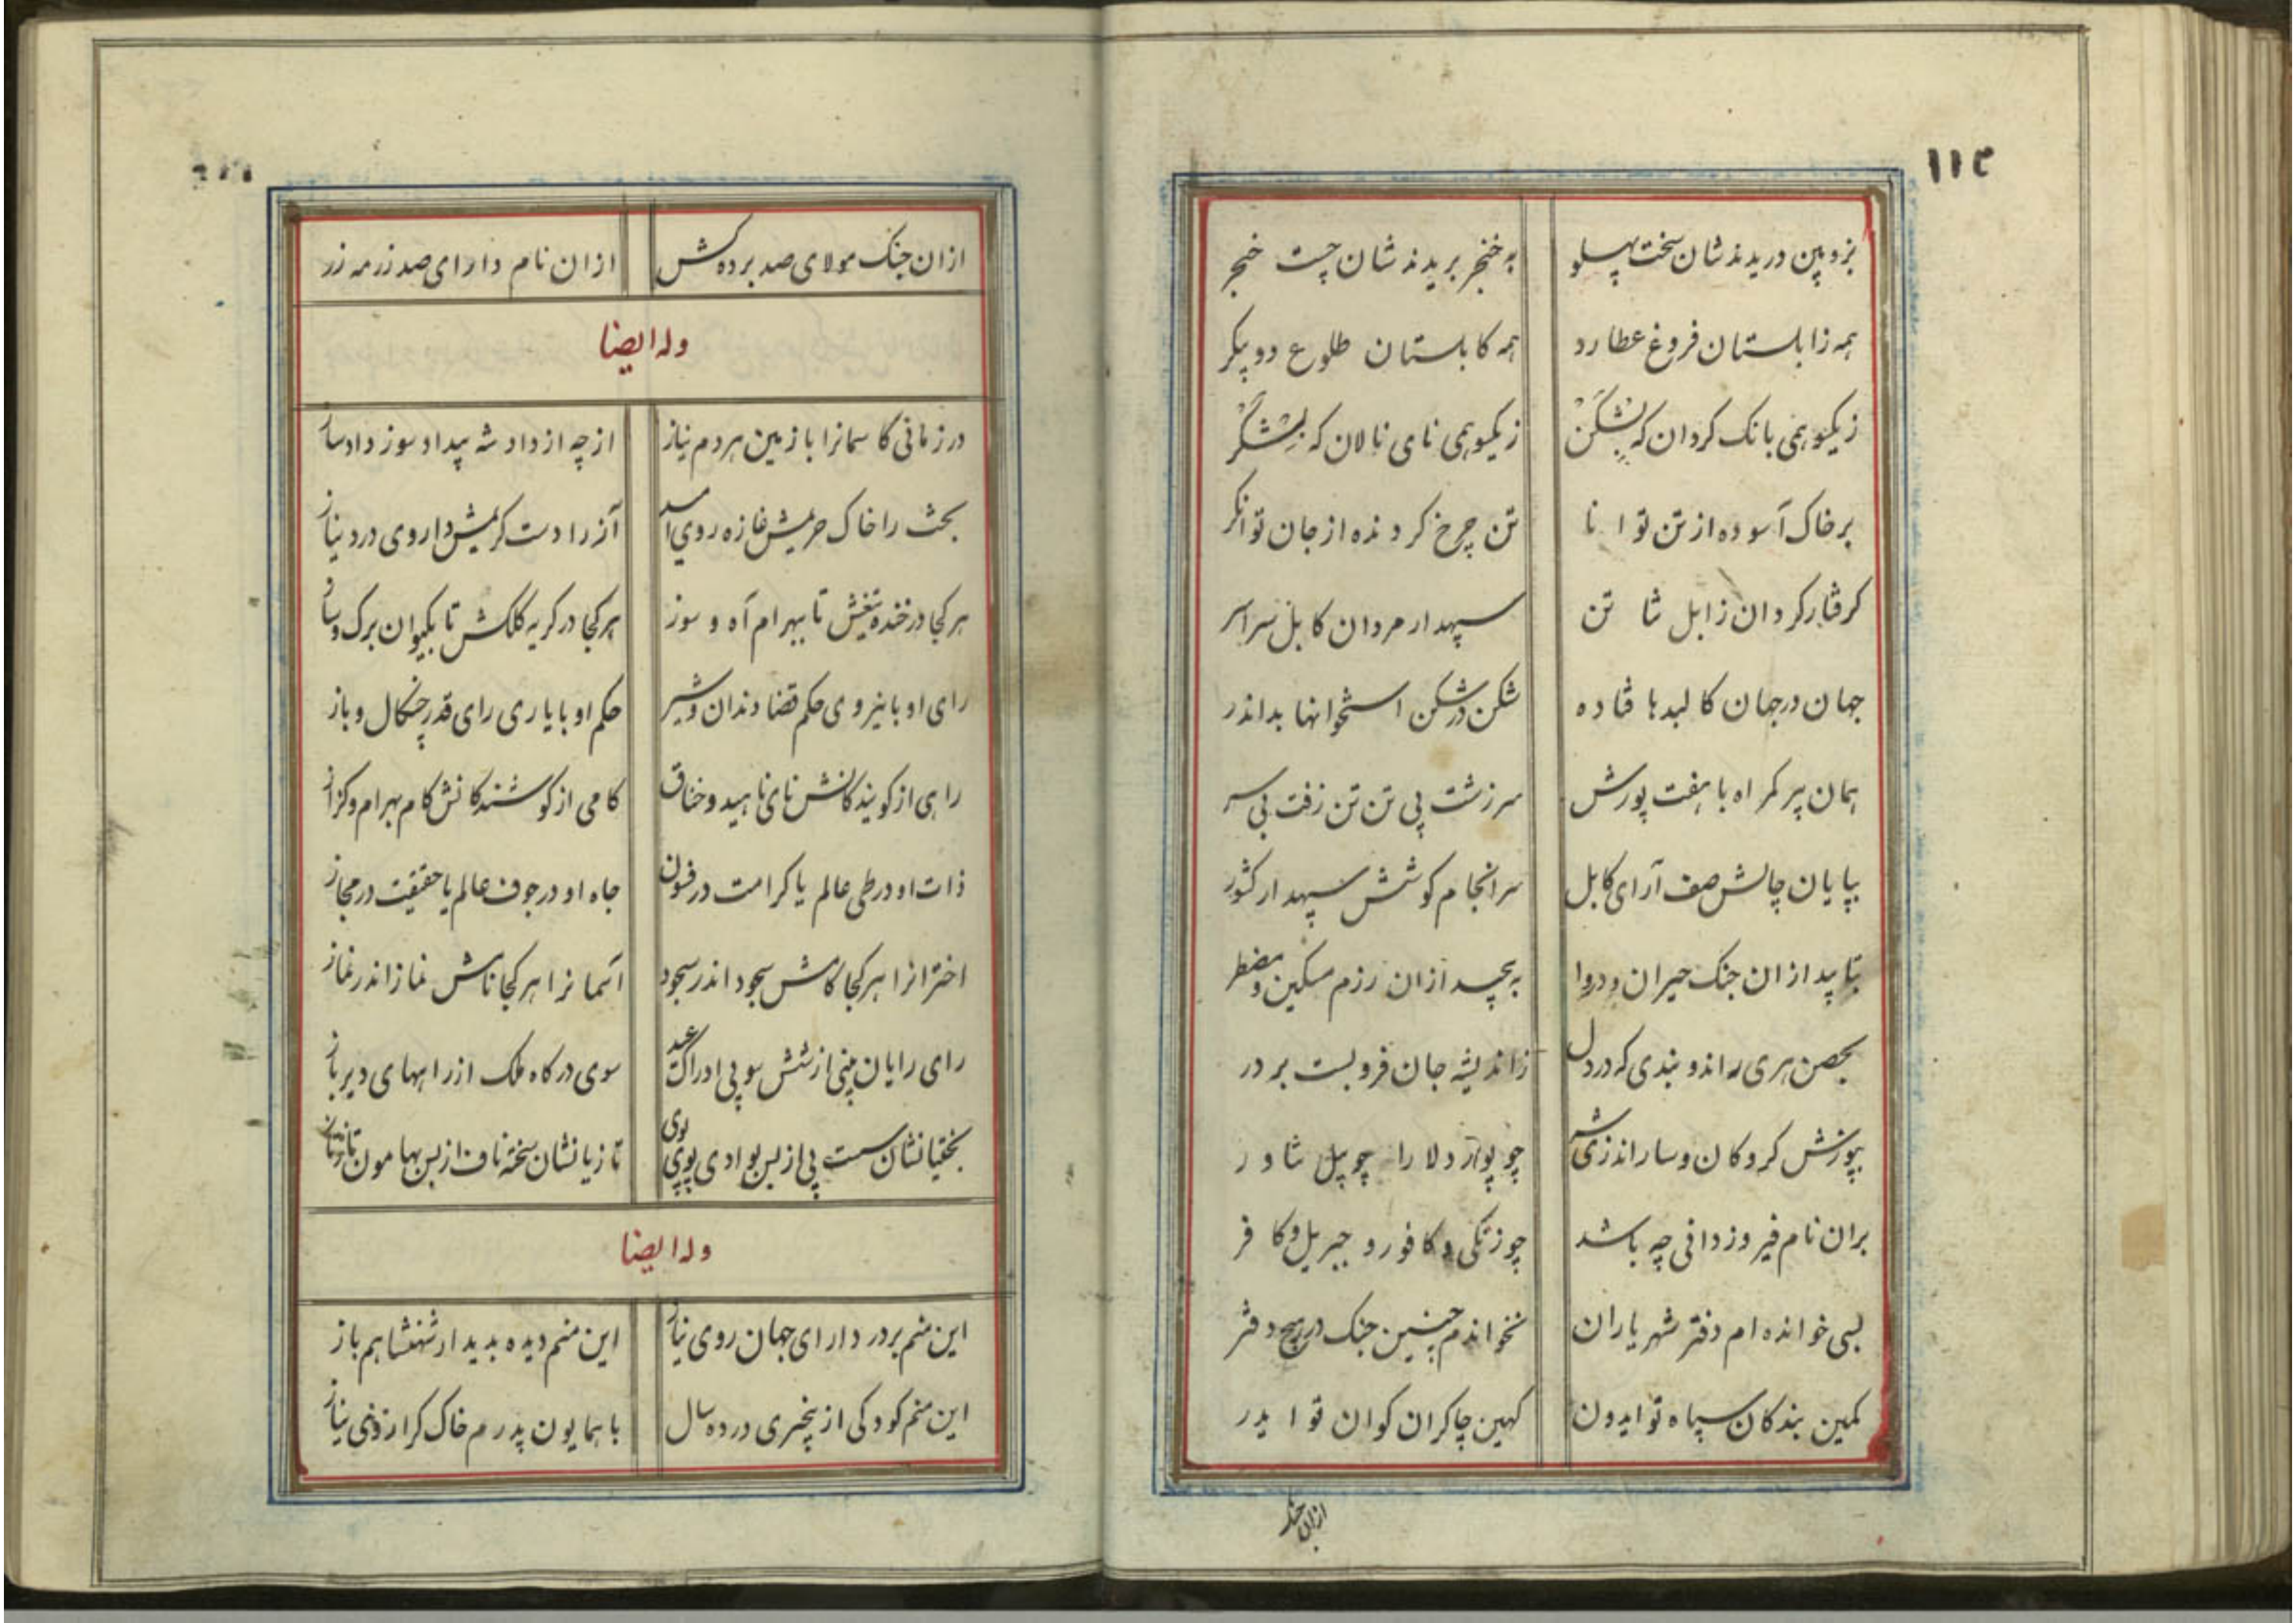 ۱۱۴
بزوبین دریدند شان سخت پهلو به خنجر بریدند شان چست خنجر
همه زابلستان فروغ عطارد همه کابلستان طلوع دو پیکر
زیکسو همی بانک کردان که بشکن زیکسو همی نای نالان که بشکر
بر خاک آسوده از تن توانا تن چرخ کردنده از جان توانکر
کرفتار کردان زابل شا تن سپهدار مردان کابل سراسر
جهان در جهان کالبدها فتاده شکن در شکن استخوانها بداندر
همان پیر کمراه با هفت پورش سر زشت پی تن تن زفت بی سر
بپایان چالش صف آرای کابل سرانجام کوشش سپهدار کشور
بتابید از ان جنک حیران و دروا به پیچید ازان رزم مسکین و مضطر
بحصن هری راند و بندی که در دل ز اندیشه جان فرو بست بر در
بپوزش کروکان و سار اندزی شه چو پولاد دلا را چو پیل شاور
بران نام فیروز دانی چه باشد چو زنکی و کافور و جبریل و کافر
بسی خوانده ام دفتر شهریاران نخواندم چنین جنک در هیچ دفتر
کمین بندکان سپاه تو ایدون کهین چاکران کوان تو ایدر
ازان جنک
ازان جنک مولای صد برده کش ازان نام دارای صد زر مه زر
وله ایضا
در زمانی کاسمانرا با زمین هر دم نیاز از چه از داد شه بیداد سوز داد ساز
بحث را خاک حریمش غازه روی امید آز را دست کریمش داروی درد نیاز
هر کجا در خنده تیغش تا ببهرام آه و سوز هر کجا در کریه کلکش تا بکیوان برک و ساز
رای او با نیروی حکم قضا دندان و شیر حکم او با یاری رای قدر چنکال و باز
راهی از کویندکانش نای ناهید و خناق کامی از کوشندکانش کام بهرام و کزاز
ذات او در طی عالم یا کرامت در فسون جاه او در جوف عالم یا حقیقت در مجاز
اخترانرا هر کجا کامش سجود اندر سجود آسمانرا هر کجا نامش نماز اندر نماز
رای رایان بینی از شش سو پی ادراک عید سوی درکاه ملک از راههای دیرباز
بختیانشان سست پی از بس بوادی پوی پوی تازیانشان سخته ناف از بس بهامون تاز تاز
وله ایضا
این منم بر در دارای جهان روی نیاز این منم دیده بدیدار شهنشاهم باز
این منم کودکی از پنجهری در ده سال با همایون پدرم خاک کرا زوبنی نیاز